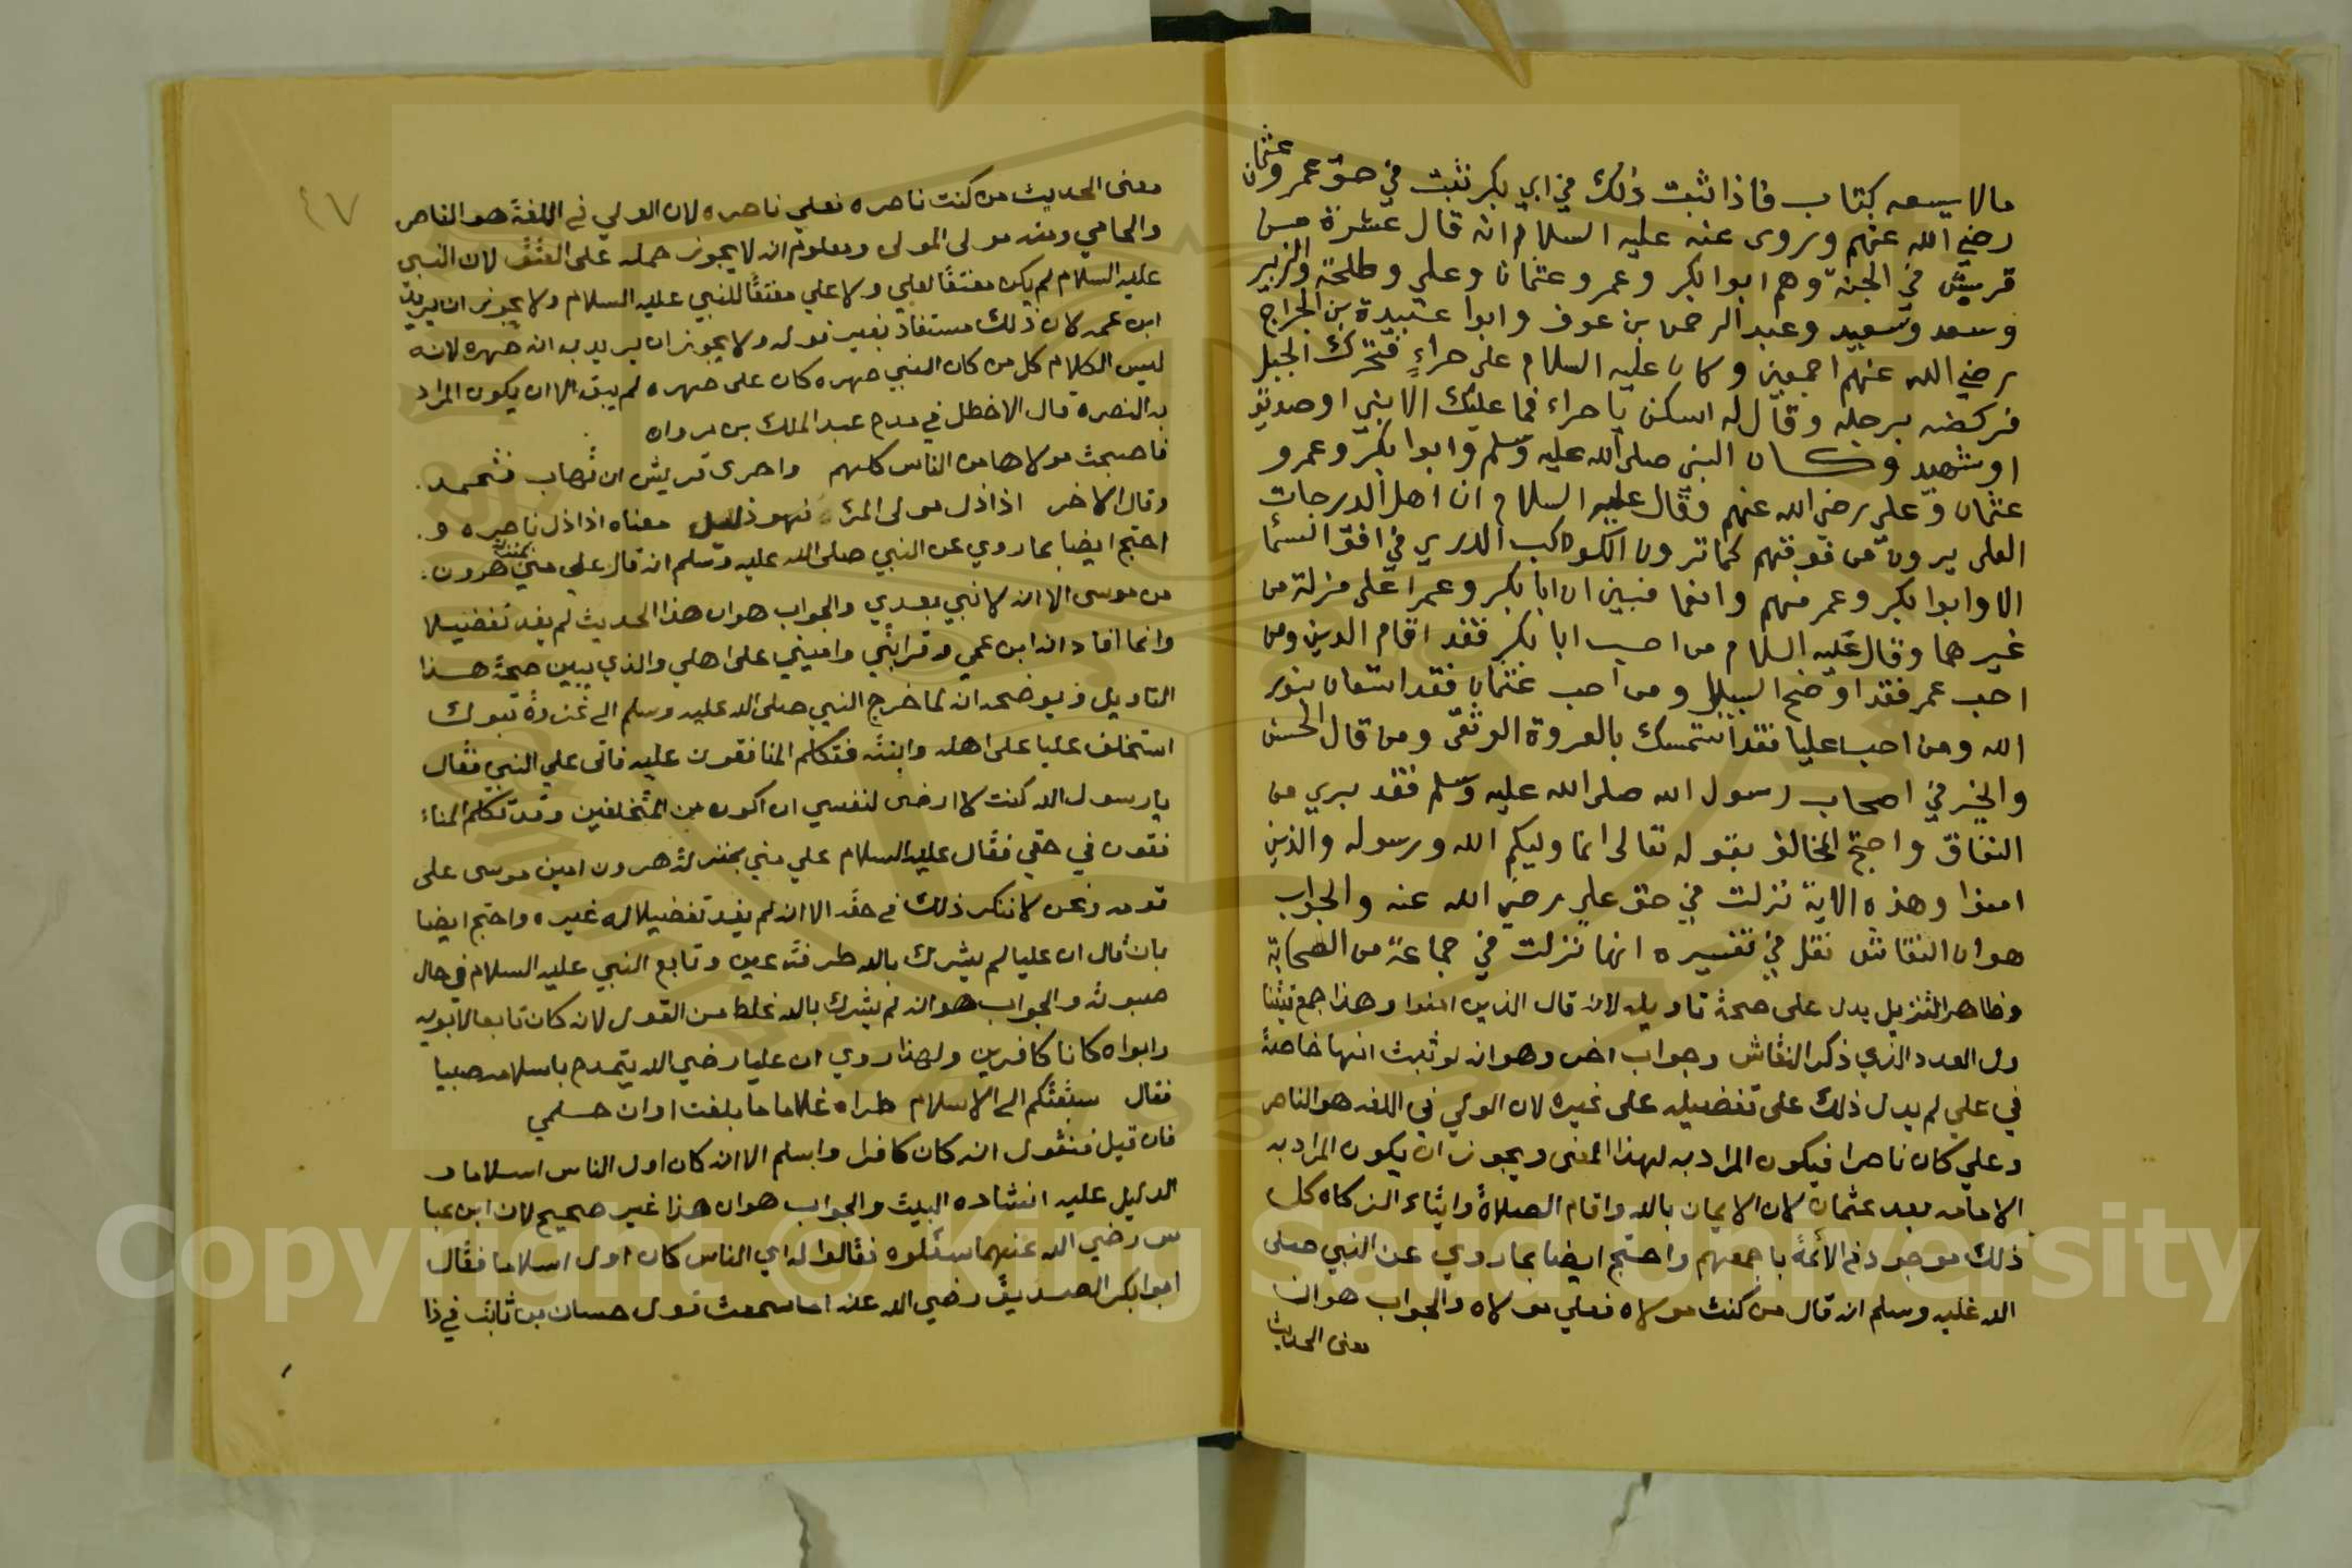 مالا يسعه كتاب فاذا ثبت ذلك في ابي بكر نثبت في حق عمر وعثمان
رضي الله عنهم ويروى عنه عليه السلام انه قال عشرة من
قريش في الجنة وهم ابوا بكر وعمر وعثمان وعلي وطلحة والزبير
وسعد وسعيد وعبد الرحمن بن عوف وابوا عبيدة بن الجراح
رضي الله عنهم اجمعين وكان عليه السلام على حراء فتحرك الجبل
فركضه برجله وقال له اسكن يا حراء فما عليك الا نبي او صديق
او شهيد وكان النبي صلى الله عليه وسلم وابوا بكر وعمر و
عثمان وعلي رضي الله عنهم وقال عليه السلام ان اهل الدرجات
العلى يرون من فوقهم كما ترون الكواكب الدري في افق السما
الا وابوا بكر وعمر منهم وانعما فبين ان ابا بكر وعمر اعلى منزلة من
غيرهما وقال عليه السلام من احب ابا بكر فقد اقام الدين ومن
احب عمر فقد اوضح السبيل ومن احب عثمان فقد استعان بنور
الله ومن احب عليا فقد استمسك بالعروة الوثقى ومن قال الحسن
والخير في اصحاب رسول الله صلى الله عليه وسلم فقد بري من
النفاق واحتج المخالف بقوله تعالى انما وليكم الله ورسوله والذين
امنوا وهذه الاية نزلت في حق علي رضي الله عنه والجواب
هو ان النقاش نقل في تفسيره انها نزلت في جماعة من الصحابة
وظاهر التنزيل يدل على صحة تاويله لانه قال الذين امنوا وهذا جمع
ول العدد الذي ذكر النقاش وجواب اخر وهو انه لو ثبت انها خاصة
في علي لم يدل ذلك على تفضيله على غيره لان الولي في اللغه هو الناصر
وعلي كان ناصرا فيكون المراد به لهذا المعنى ويجوز ان يكون المراد به
الامامه بعد عثمان لان الايمان بالله واقام الصلاة وايتاء الزكاه كل
ذلك موجود في الائمة باجمعهم واحتج ايضا بما روي عن النبي صلى
الله عليه وسلم انه قال من كنت مولاه فعلي مولاه والجواب هو ان
معنى الحديث
٤٧
معنى الحديث من كنت ناصره فعلي ناصره لان الولي في اللغة هو الناصر
والحامي ومنه مولى المولى ومعلوم انه لا يجوز حمله على العتق لان النبي
عليه السلام لم يكن معتقا لعلي ولا علي معتقا للنبي عليه السلام ولا يجوز ان يريد
ابن عمه لان ذلك مستفاد بغير قوله ولا يجوز ان يريد به انه صهره لانه
ليس الكلام كل من كان النبي صهره كان علي صهره لم يبق الا ان يكون المراد
به النصرة قال الاخطل في مدح عبد الملك بن مروان
فاصبحت مولاها من الناس كلهم واحرى قريش ان تهاب فتحمد
وقال الاخر اذا ذل مولى المرء فهو ذليل معناه اذا ذل ناصره و
احتج ايضا بما روي عن النبي صلى الله عليه وسلم انه قال علي مني بمنزلة هرون
من موسى الا انه لا نبي بعدي والجواب هو ان هذا الحديث لم يفد تفضيلا
وانما افاد انه ابن عمي وقرابتي واميني على اهلي والذي يبين صحة هذا
التاويل ويوضحه انه لما خرج النبي صلى الله عليه وسلم الى غزوة تبوك
استخلف عليا على اهله وابنته فتكلم المنافقون عليه فاتى علي النبي فقال
يا رسول الله كنت لا ارضى لنفسي ان اكون من المتخلفين وقد تكلم المنا
فقون في حقي فقال عليه السلام علي مني بمنزلة هرون امين موسى على
قومه ونحن لا ننكر ذلك في حقه الا انه لم يفد تفضيلا له غيره واحتج ايضا
بان قال ان عليا لم يشرك بالله طرفة عين وتابع النبي عليه السلام في حال
صبوته والجواب هو انه لم يشرك بالله غلط من القول لانه كان تابعا لابويه
وابواه كانا كافرين ولهذا روي ان عليا رضي الله يتمدح باسلامه صبيا
فقال سبقتكم الى الاسلام طرا غلاما ما بلغت اوان حلمي
فان قيل فنقول انه كان كافرا واسلم الا انه كان اول الناس اسلاما و
الدليل عليه انشاده البيت والجواب هو ان هذا غير صحيح لان ابن عبا
س رضي الله عنهما سئلوه فقالوا له اي الناس كان اول اسلاما فقال
ابوا بكر الصديق رضي الله عنه اما سمعت قول حسان بن ثابت في ذا
Copyright © King Saud University